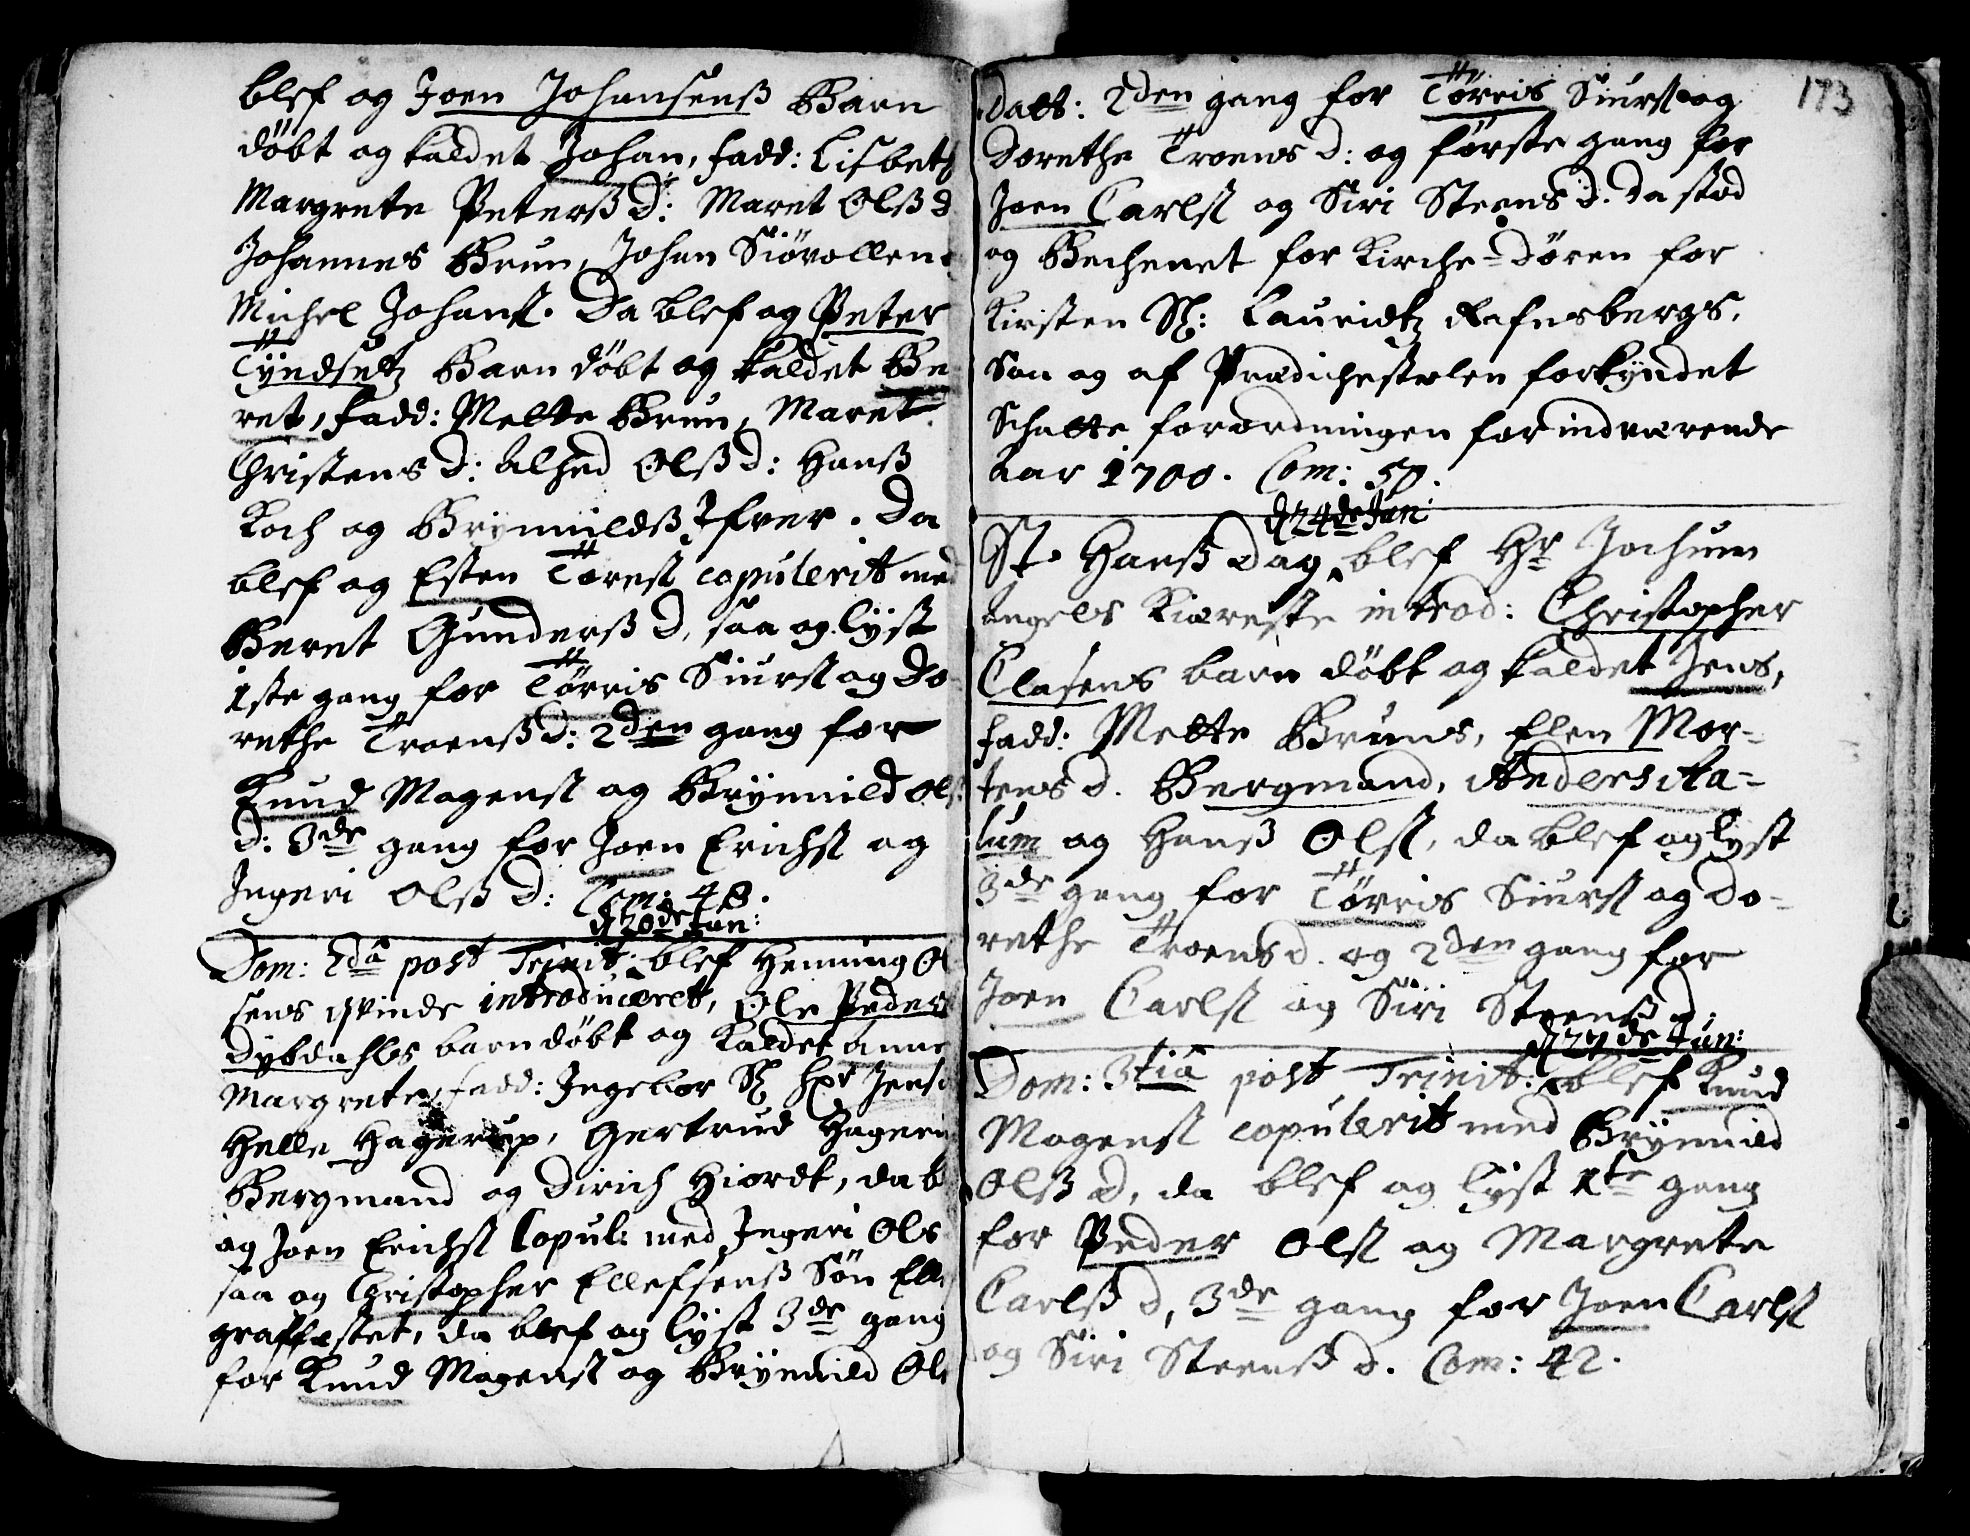 blef og Joen Johansenß Barn
döbt og kaldet Johan, fadd: Lisbeth
Margrete Peterß d: Maret Olß d
Johannes Brun, Johan Siövollen
Michel Johanß. Da blef og Peter
Tyndsetz Barn döbt og kaldet Be
ret, fadd: Mette Brun, Maret
Christens d: Alhed Olß d: Hanß
Koch og Brynnildß Ifver. Da
blef og Esten Töresß copulerit med
Beret Gunderß d, saa og lyst
1ste gang for Törris Siursß og Do
rethe Troenß d: 2den gang for
Knud Mogensß og Brynnild Olß
d: 3de gang for Joen Erichsß og
Ingeri Olß d: Com: 48.
d 20de Jun:
Dom: 2da post Trinit: blef Henning Ol
sens qvinde introduceret, Ole Peders
Dybdahls barn döbt og kaldet Anne
Margrete, fadd: Ingebor Sl Hr Jens
Helle Hagerup, Gertrud Hageru
Bergmand og Dirich Hiordt, da b
og Joen Erichsß Copul: med Ingeri Ols
saa og Christopher Ellefsenß Sön Elle
graffestet, da blef og lyst 3de gang
for Knud Mogensß og Brynnild Ols
173
datt: 2den gang for Törris Siursß og
Dorethe Troens d: og förste gang for
Joen Carlsß og Siri Steens d. da stod
og Bechenet for Kirche-Dören for
Kirsten Sl: Lauridtz Rafnsbergs,
Son og af Prædichestolen forkyndet
Schatte forordningen for indværende
Aar 1700. Com: 50.
d 24de Jun:
St. Hanß Dag blef Hr Jochum
Angels Kiereste introd: Christopher
Clasens barn döbt og kaldet Jens,
fadd: Mette Bruns, Elen Mor-
tens d. Bergmand, Anders Ka-
lum og Hanß Olsß, da blef og lyst
3de gang for Törris Siursß og Do-
rethe Troens d. og 2den gang for
Joen Carlsß og Siri Steenß d.
d 27de Jun:
Dom: 3tia post Trinit: blef Knud
Mogensß copulerit med Brynnild
Olß d, da blef og lyst 1te gang
for Peder Olsß og Margrete
Carlß d, 3de gang for Joen Carlsß
og Siri Steenß d. Com: 42.